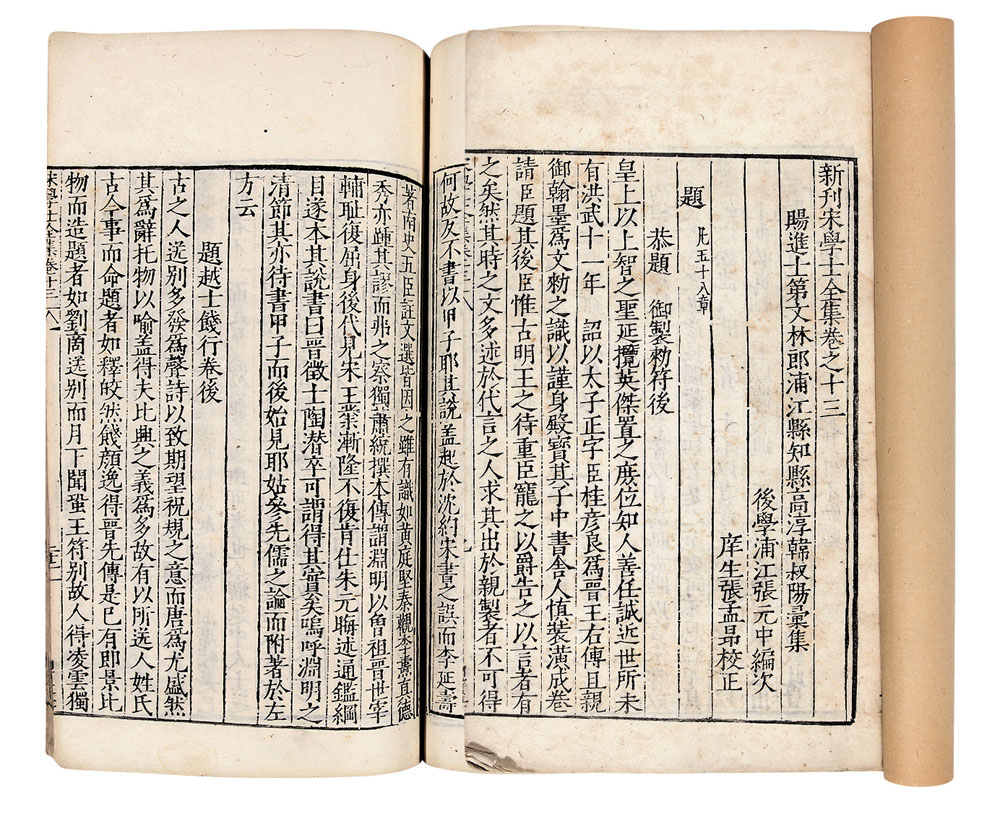 新刊宋學士全集卷之十三
賜進士第文林郎浦江縣知縣高淳韓叔陽彙集
後學浦江張元中編次
庠生張孟昂校正
題 凡五十八章
恭題 御製勅符後
皇上以上智之聖延攬英傑置之庶位知人善任誠近世所未
有洪武十一年 詔以太子正字臣桂彥良爲晉王右傅且親
御翰墨爲文勅之識以謹身殿寶其子中書舍人慎裝潢成卷
請臣題其後臣惟古明王之待重臣寵之以爵告之以言者有
之矣然其時之文多述於代言之人求其出於親製者不可得
何故反不書以甲子耶其說盖起於沈約宋書之誤而李延壽
著南史五臣註文選皆因之雖有識如黃庭堅秦觀李燾眞德
秀亦踵其謬而弗之察獨蕭統撰本傳謂淵明以曾祖晉世宰
輔耻復屈身後代見宋王業漸隆不復肯仕朱元晦述通鑑綱
目遂本其說書曰晉徵士陶潜卒可謂得其實矣嗚呼淵明之
清節其亦待書甲子而後始見耶姑參先儒之論而附著於左
方云
題越士餞行卷後
古之人送别多發爲聲詩以致期望祝規之意而唐爲尤盛然
其爲辭托物以喻盖得夫比興之義爲多故有以所送人姓氏
古今事而命題者如釋皎然餞顏逸得晉先傳是已有即景比
物而造題者如劉商送别而月下聞蛩王符别故人得凌雲獨